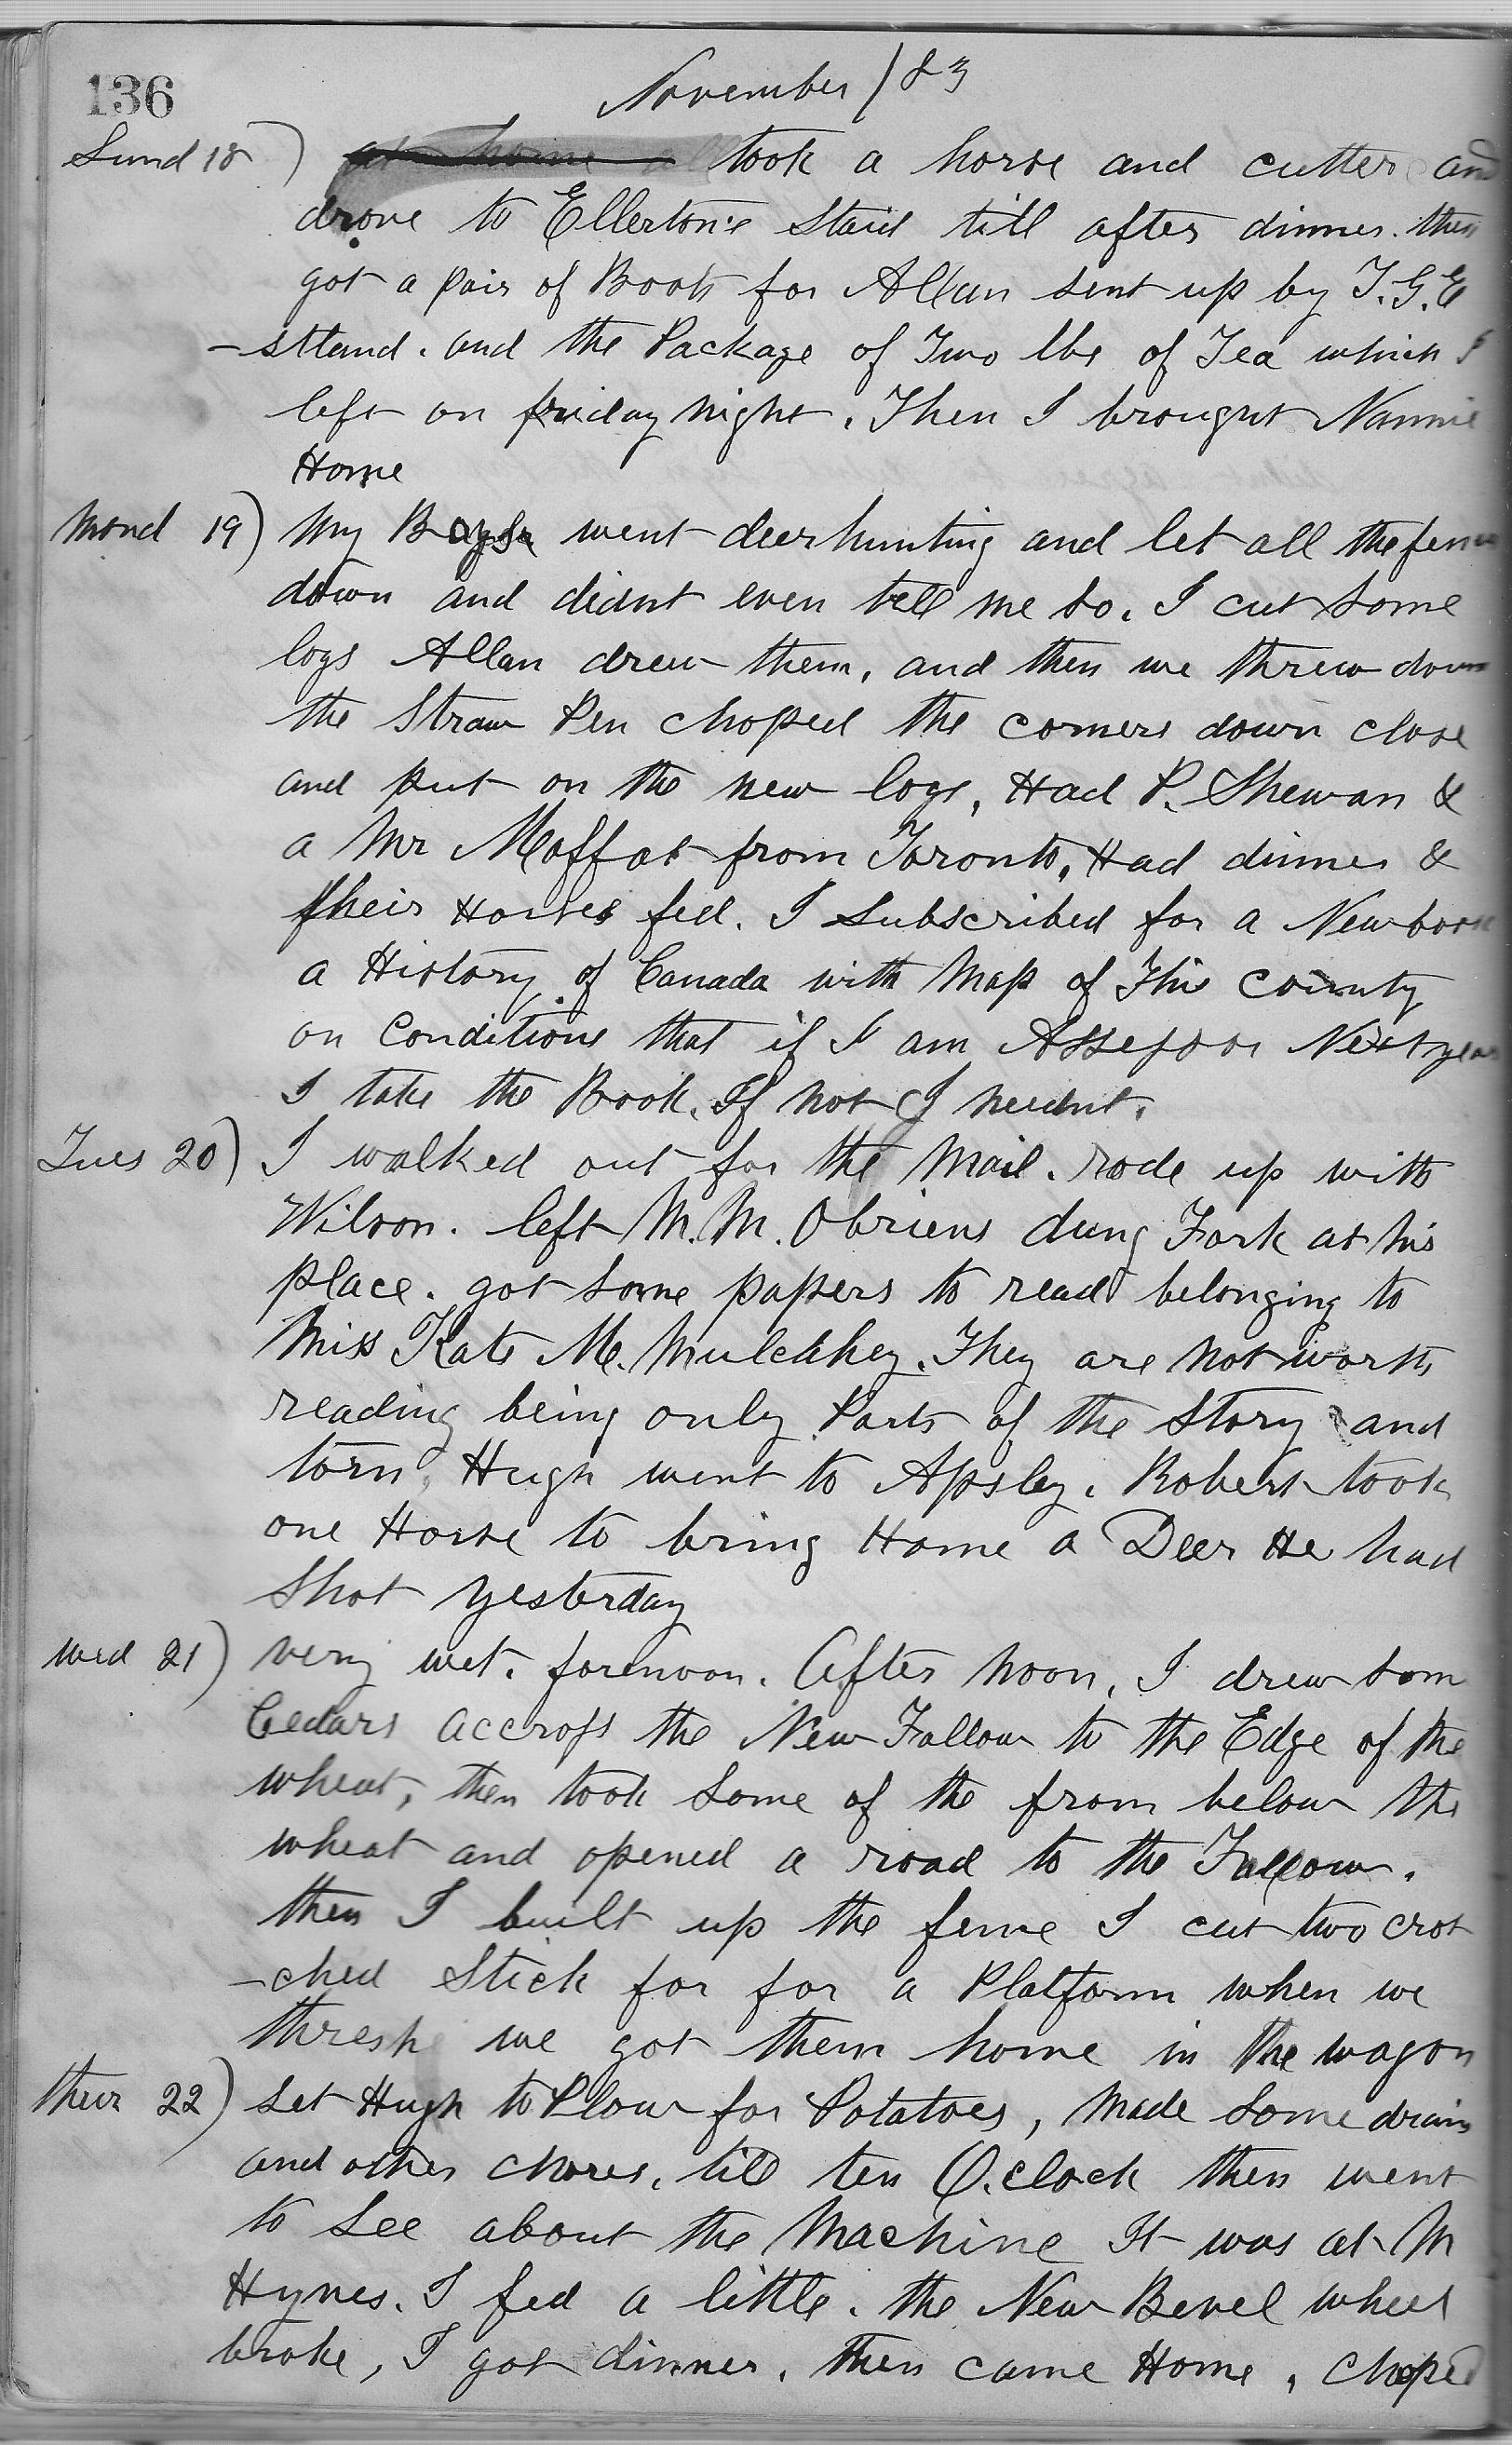 136
November /83
Sund 18) at home a took a horse and cutter and
drove to Ellerton's staid till after dinner. then
got a pair of Boots for Allan sent up by T.G.E
-stland. and the Package of Two lbs of Tea which I
left on friday night. Then I brought Nannie
Home
Mond 19) My Boys went deerhunting and let all the fence
down and didnt even tell me so. I cut some
logs Allan drew them, and then we threw down
the Straw Pen choped the corners down close
and put on the new logs, Had P. Shewan &
a Mr Moffat from Toronto, Had dinner &
their Horses fed. I Subscribed for a New book
a History of Canada with Map of This county
on Conditions that if I am Assessor Next year
I take the Book. If not I neednt.
Tues 20) I walked out for the Mail. rode up with
Wilson. left M. M. Obriens dung Fork at his
place. got some papers to read belonging to
Miss Kate Mc. Mulckhey. They are not worth
reading being only Parts of the Story and
torn. Hugh went to Apsley. Robert took
one Horse to bring Home a Deer He had
Shot yesterday
Wed 21) very wet. forenoon. After noon, I drew som
Cedars accross the New Fallow to the Edge of the
wheat, then took some of the from below the
wheat and opened a road to the Fallow.
then I built up the fence I cut two crot
-ched Stick for for a Platform when we
thresh we got them home in the wagon
thur 22) Set Hugh to Plow for Potatoes, Made some drains
and other chores, till ten O.clock then went
to See about the Machine It was at M
Hynes. I fed a little. the New Bevel wheel
broke, I got dinner, then came Home, choped